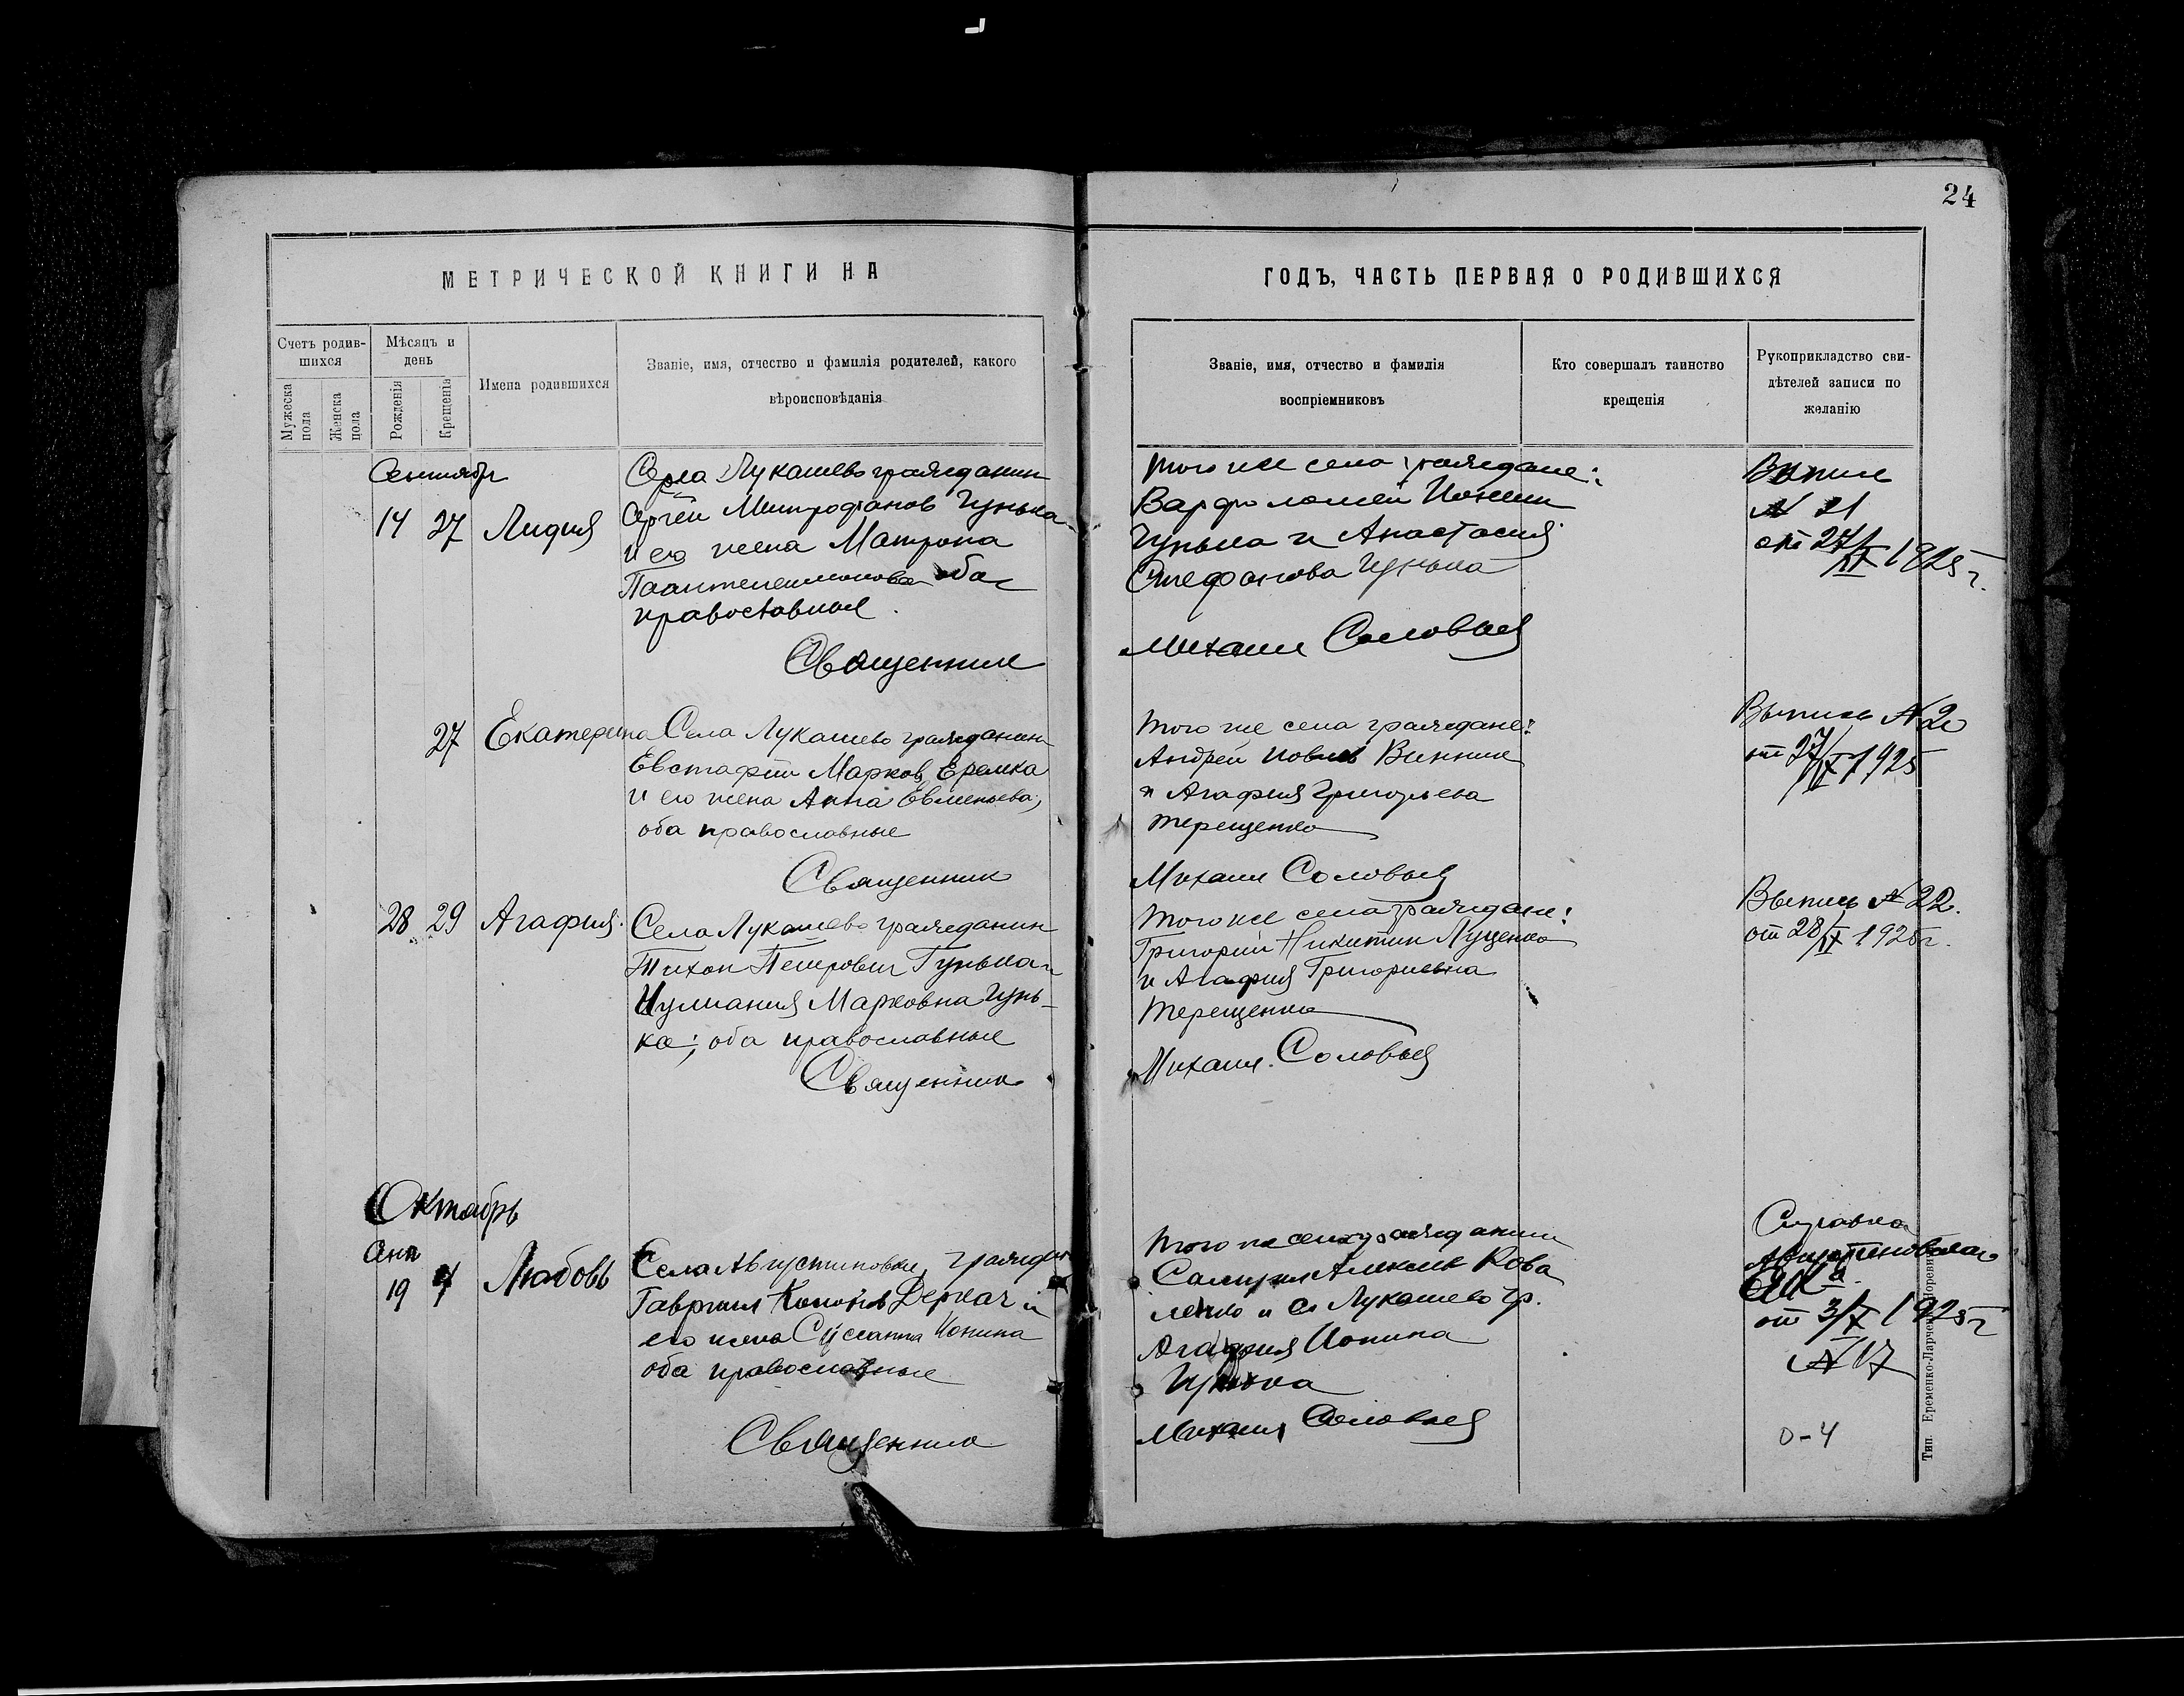 24
МЕТРИЧЕСКОЙ КНИГИ НА
ГОДЪ, ЧАСТЬ ПЕРВАЯ О РОДИВШИХСЯ
Счетъ родив-
шихся
Мужеска пола
Женска пола
Мѣсяцъ и
день
Рожденія
Крещенія
Имена родившихся
Званіе, имя, отчество и фамилія родителей, какого
вѣроисповѣданія
Званіе, имя, отчество и фамилія
воспріемниковъ
Кто совершалъ таинство
крещенія
Рукоприкладство сви-
дѣтелей записи по
желанію
Сентябрь
14 27 Лидия
Села Лукашево гражданин
Сергей Митрофанов Гунька
и его жена Матрона
оба
православные
Священник
того же села граждане:
Варфоломей Ионин
Гунька и Анастасия
Стефанова Гунька
Михаил Соловьев
N 21
от 27/IX 1925 г.
27 Екатерина
Села Лукашево гражданин
Евстафий Марков Еремка
и его жена Анна Евменьева;
оба православные
Священник
того же села граждане:
Андрей Винник
и Агафия Григорьева
Терещенко
Михаил Соловьев
Выпись N 20
от 27/IX 1925
28 29 Агафия.
Села Лукашево гражданин
Тихон Петрович Гунька и
Иулиания Марковна Гунь-
ка; оба православные
Священник
того же села граждане:
Григорий Никитин Луценко
и Агафия Григориевна
Терещенко
Михаил Соловьев
Выпись N 22.
от 28/IX 1925 г.
Октябрь
19 4 Любовь
Села Августиновки, граждан
Гавриил Кононов Деркач и
его жена Сусанна Ионина
оба православные
Священник
того же села гражданин
Алексеев Кова
ленко и с. Лукашево гр.
Агафия Ионина
Гунька
Михаил Соловьев
Справка
от 3/X 1925 г
N 17
0-4
Тип. Еременко-Ларченко